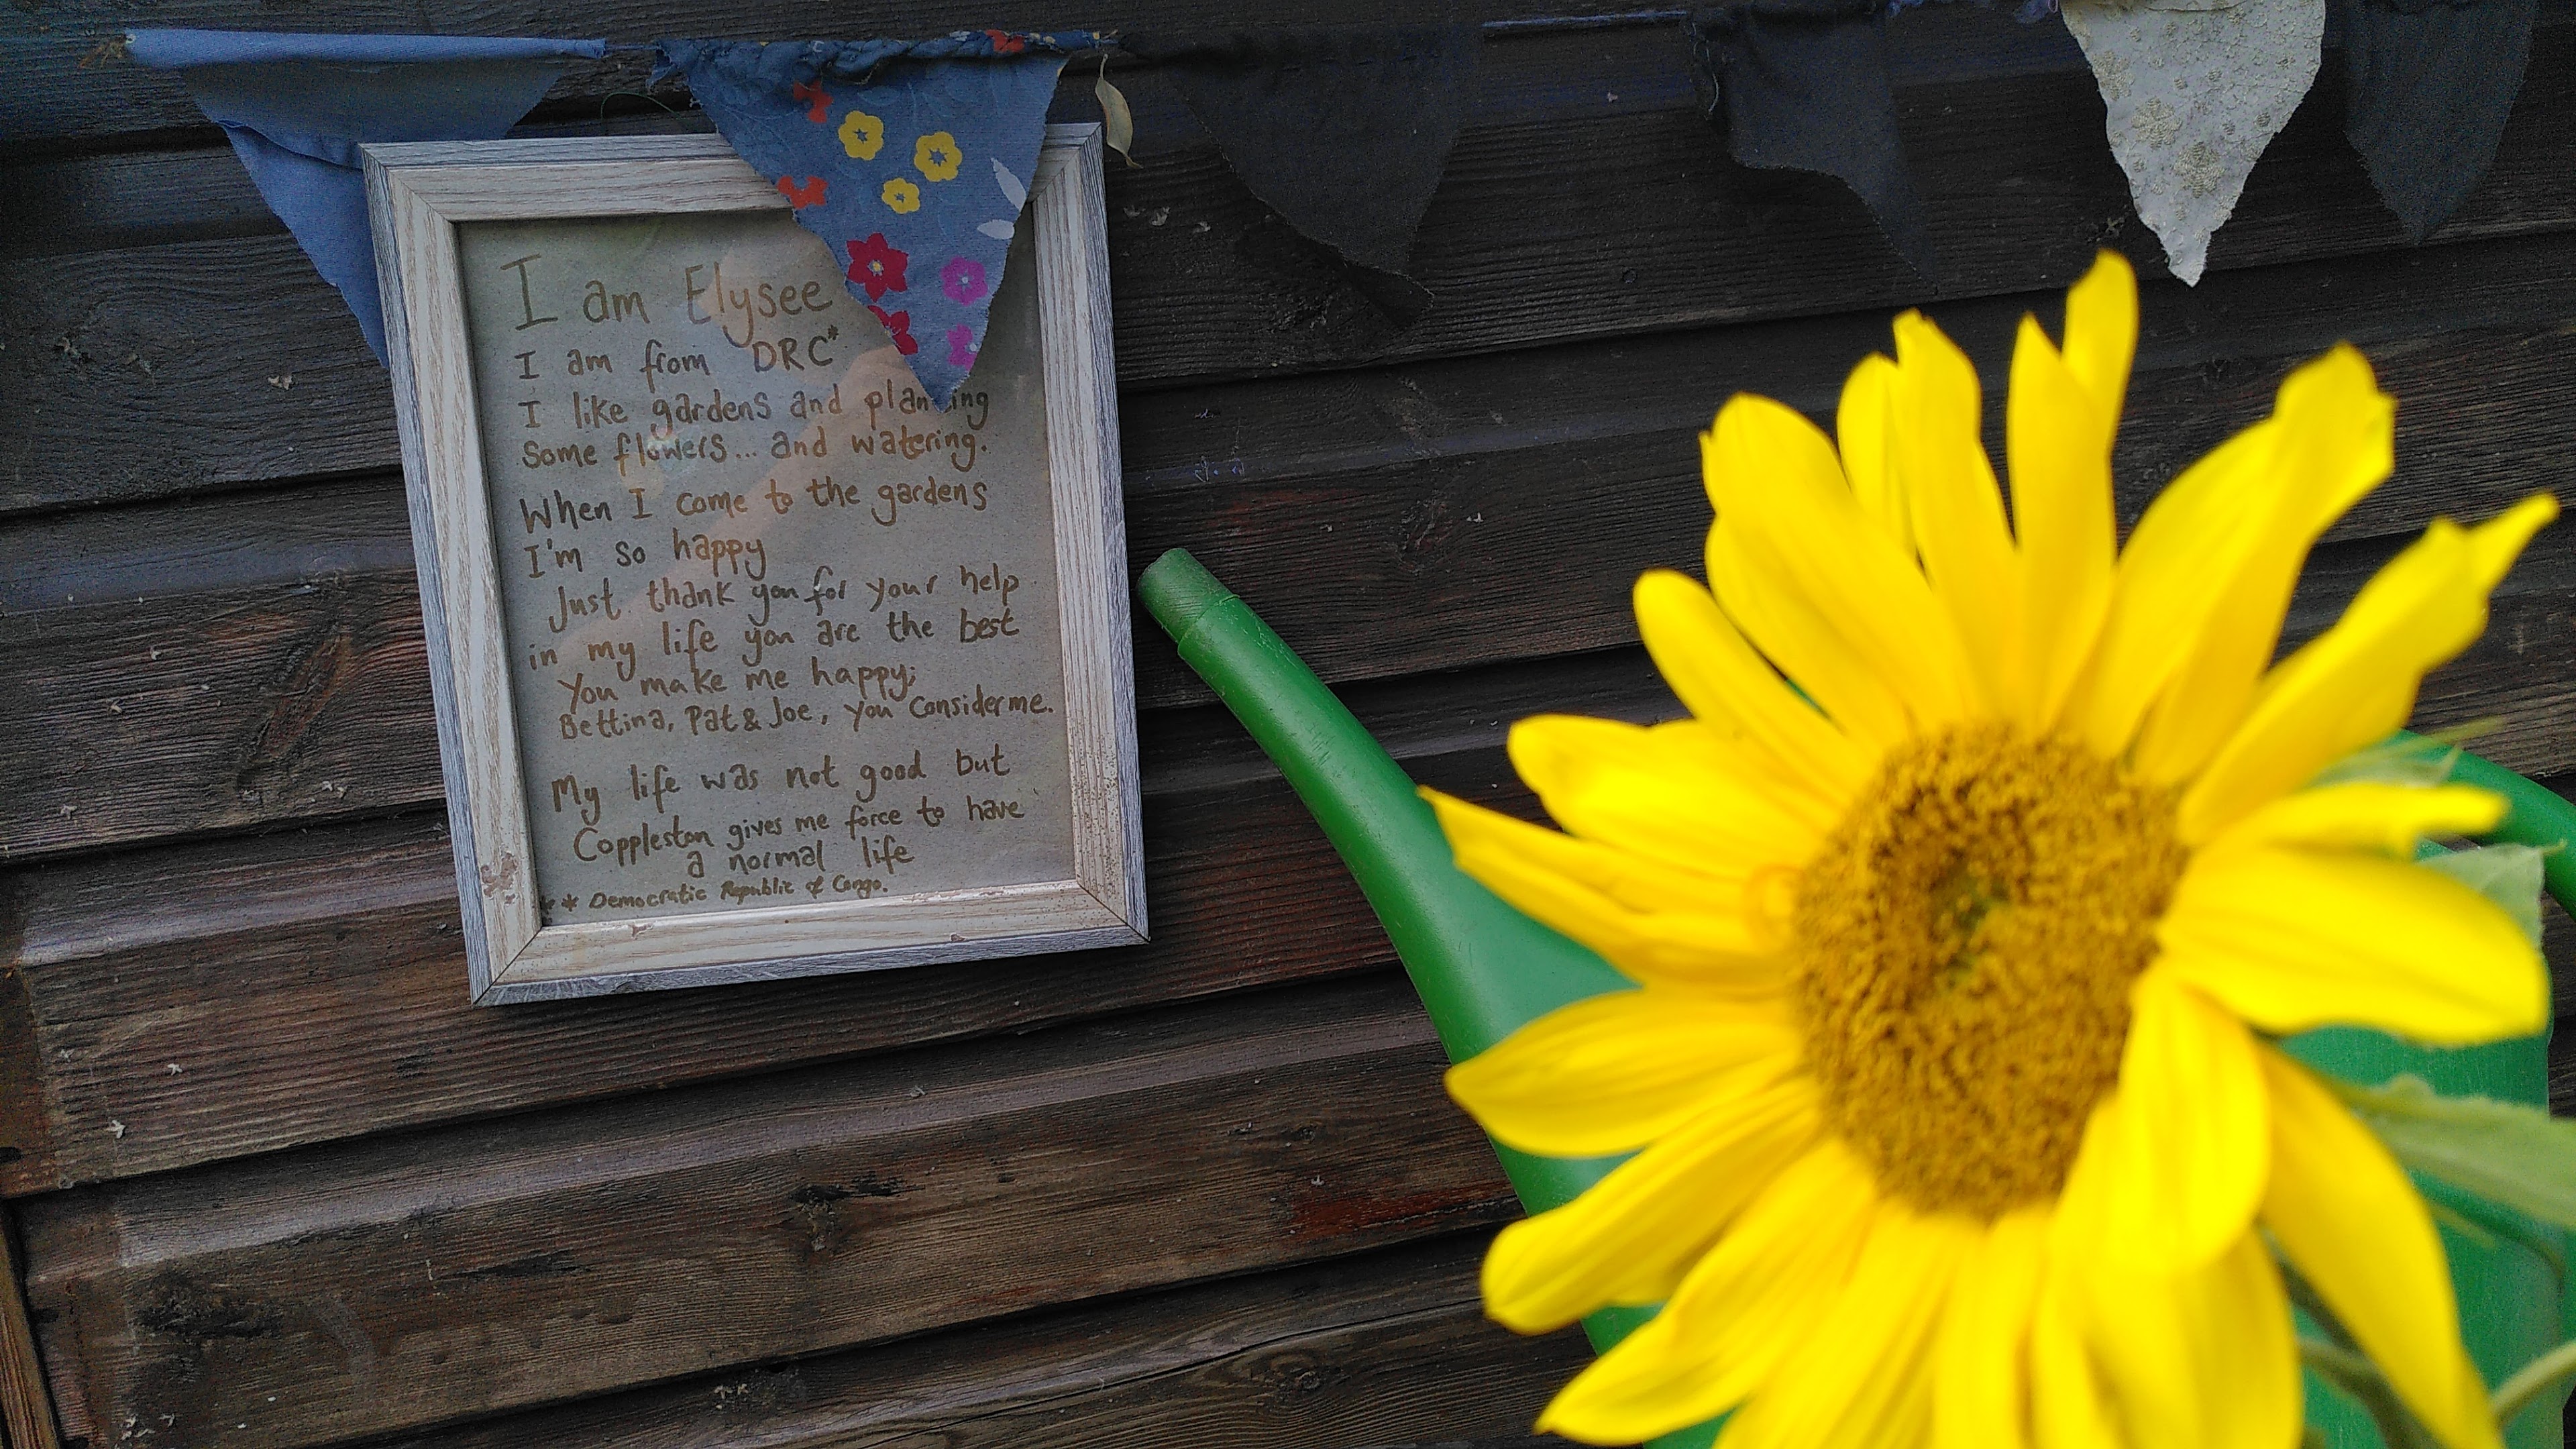 I am Elysee
I am from DRC*
I like gardens and planting
Some flowers... and watering.
When I come to the gardens
I'm so happy
Just thank you for your help
in my life you are the best
You make me happy;
Bettina, Pat & Joe, you Consider me.
My life was not good but
Coppleston gives me force to have
a normal life
** Democratic Republic of Congo.